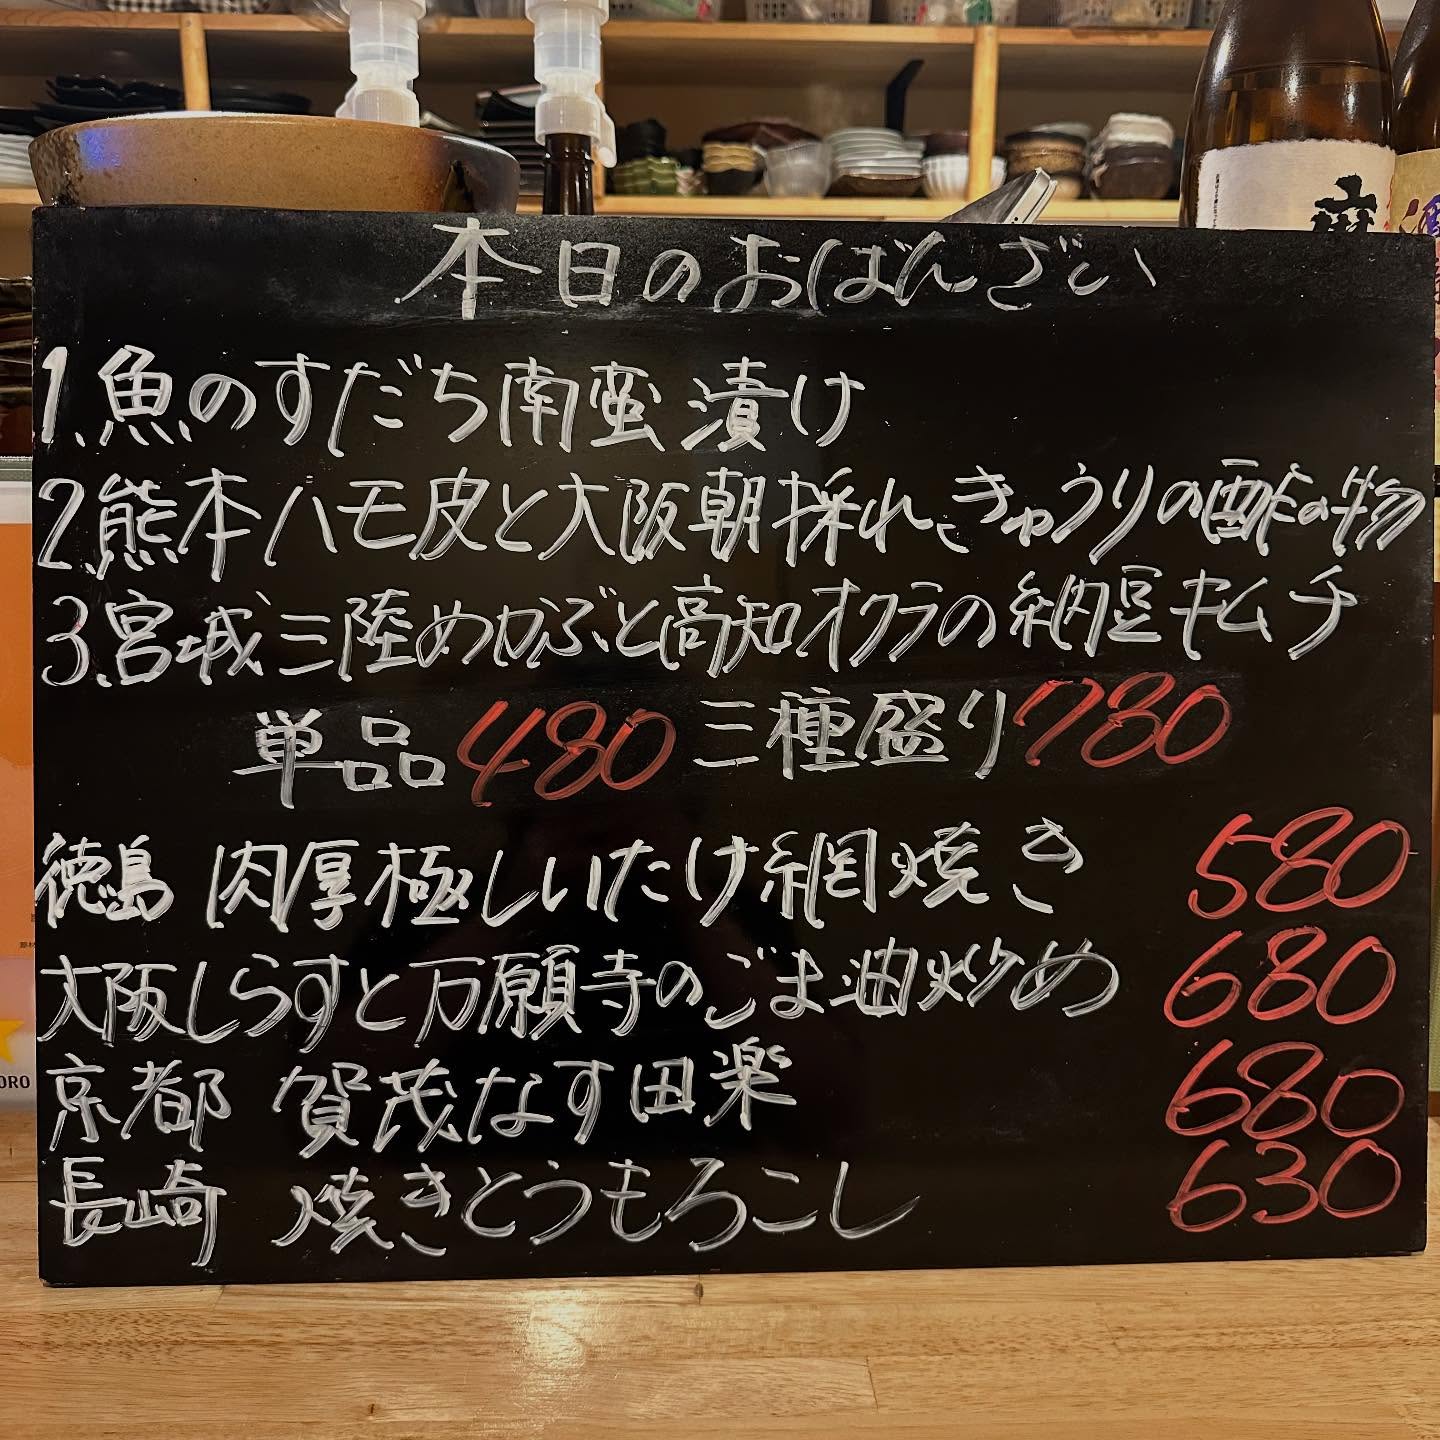 本日のおばんざい
1.魚のすだち南蛮漬け
2.熊本ハモ皮と大阪朝採れきゅうりの酢の物
3.宮城三陸めかぶと高知オクラの納豆キムチ
単品480 三種盛り780
徳島 肉厚極しいたけ網焼き 580
大阪しらすと万願寺のごま油炒め 680
京都 賀茂なす田楽 680
長崎 焼きとうもろこし 630